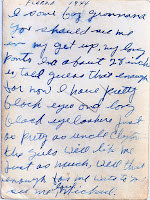 1944
I sure big grandma
You should see me
in my get up, my long
pants. I'm about 28 inches
tall guess that enough
for now I have pretty
black eyes and long
black eyelashes just
as pretty as uncle Clyde
the girls will like me
just as much, well that
enough for me write &
see me Michael.